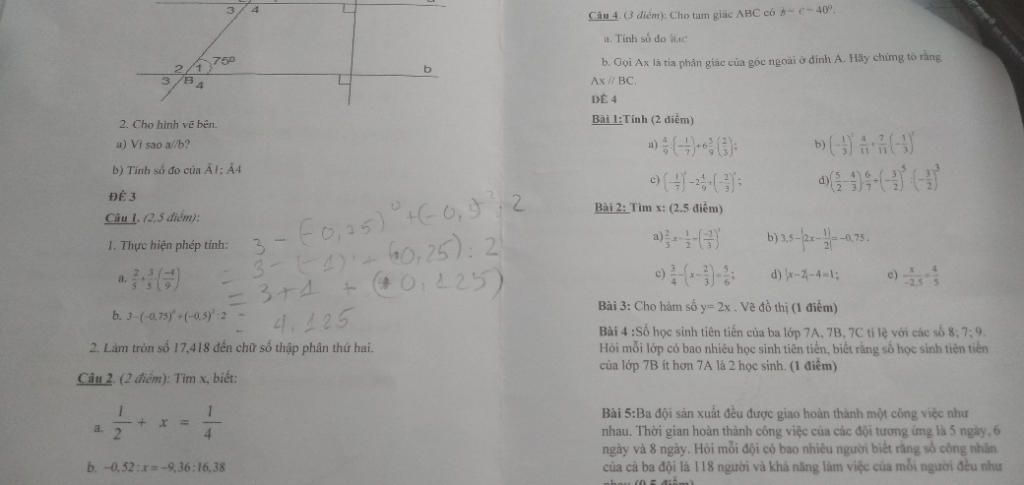 3 4
2 1 75⁰
3 B 4 b
2. Cho hình vẽ bên.
a) Vì sao a//b?
b) Tính số đo của Â1; Â4
ĐỀ 3
Câu 1. (2,5 điểm):
1. Thực hiện phép tính:
a. 2/5 + 3/5 (-4/9)
b. 3-(-0,75)⁰+(-0,5)²:2
3 - (-0,25)⁰ + (-0,5)² : 2
= 3 - (-1) + (0,25) : 2
= 3 + 1 + (0,125)
= 4,125
2. Làm tròn số 17,418 đến chữ số thập phân thứ hai.
Câu 2. (2 điểm): Tìm x, biết:
a. 1/2 + x = 1/4
b. -0,52:x=-9,36:16,38
Câu 4. (3 điểm): Cho tam giác ABC có B = C = 40⁰.
a. Tính số đo BAC
b. Gọi Ax là tia phân giác của góc ngoài ở đỉnh A. Hãy chứng tỏ rằng
Ax // BC.
ĐỀ 4
Bài 1:Tính (2 điểm)
Bài 2: Tìm x: (2.5 điểm)
b) 3,5-|2x-1/2|=-0,75.
c) 3/4-(x-2/3)=5/6; d) |x-2|-4=1; e) x/-2,5=4/5
Bài 3: Cho hàm số y= 2x . Vẽ đồ thị (1 điểm)
Bài 4 :Số học sinh tiên tiến của ba lớp 7A, 7B, 7C tỉ lệ với các số 8; 7; 9.
Hỏi mỗi lớp có bao nhiêu học sinh tiên tiến, biết rằng số học sinh tiên tiến
của lớp 7B ít hơn 7A là 2 học sinh. (1 điểm)
Bài 5:Ba đội sản xuất đều được giao hoàn thành một công việc như
nhau. Thời gian hoàn thành công việc của các đội tương ứng là 5 ngày, 6
ngày và 8 ngày. Hỏi mỗi đội có bao nhiêu người biết rằng số công nhân
của cả ba đội là 118 người và khả năng làm việc của mỗi người đều như
nhau (0,5 điểm)